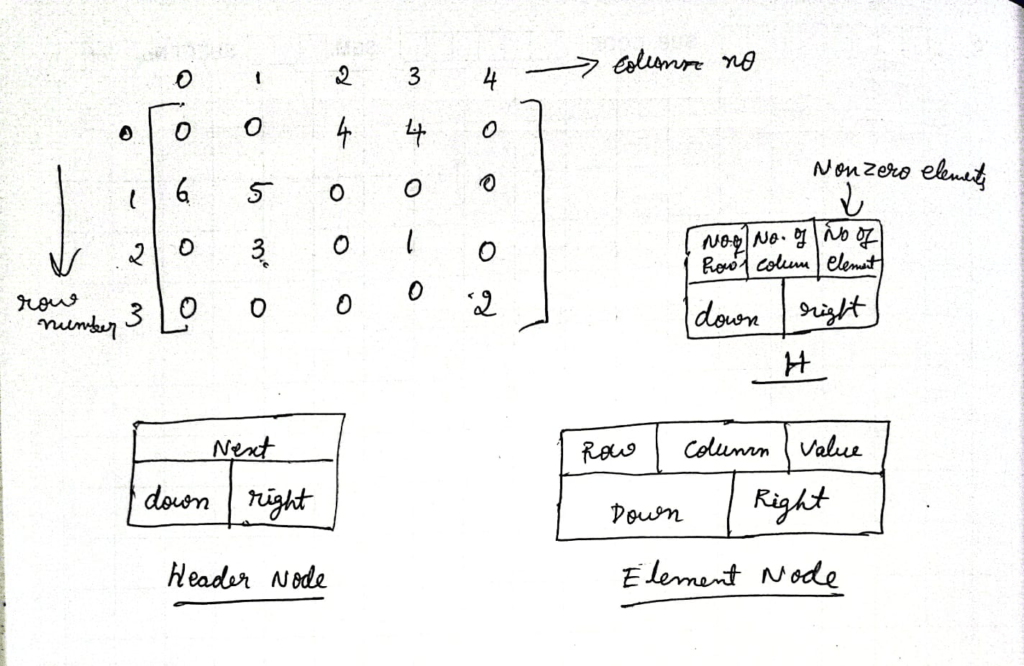 0 1 2 3 4 → column no
0 0 0 4 4 0
1 6 5 0 0 0
2 0 3 0 1 0
3 0 0 0 0 2
row
number
Non zero elements
No of No. of No of
Rows Colum Element
down right
H
Next
down right
Header Node
Row Column Value
Down Right
Element Node